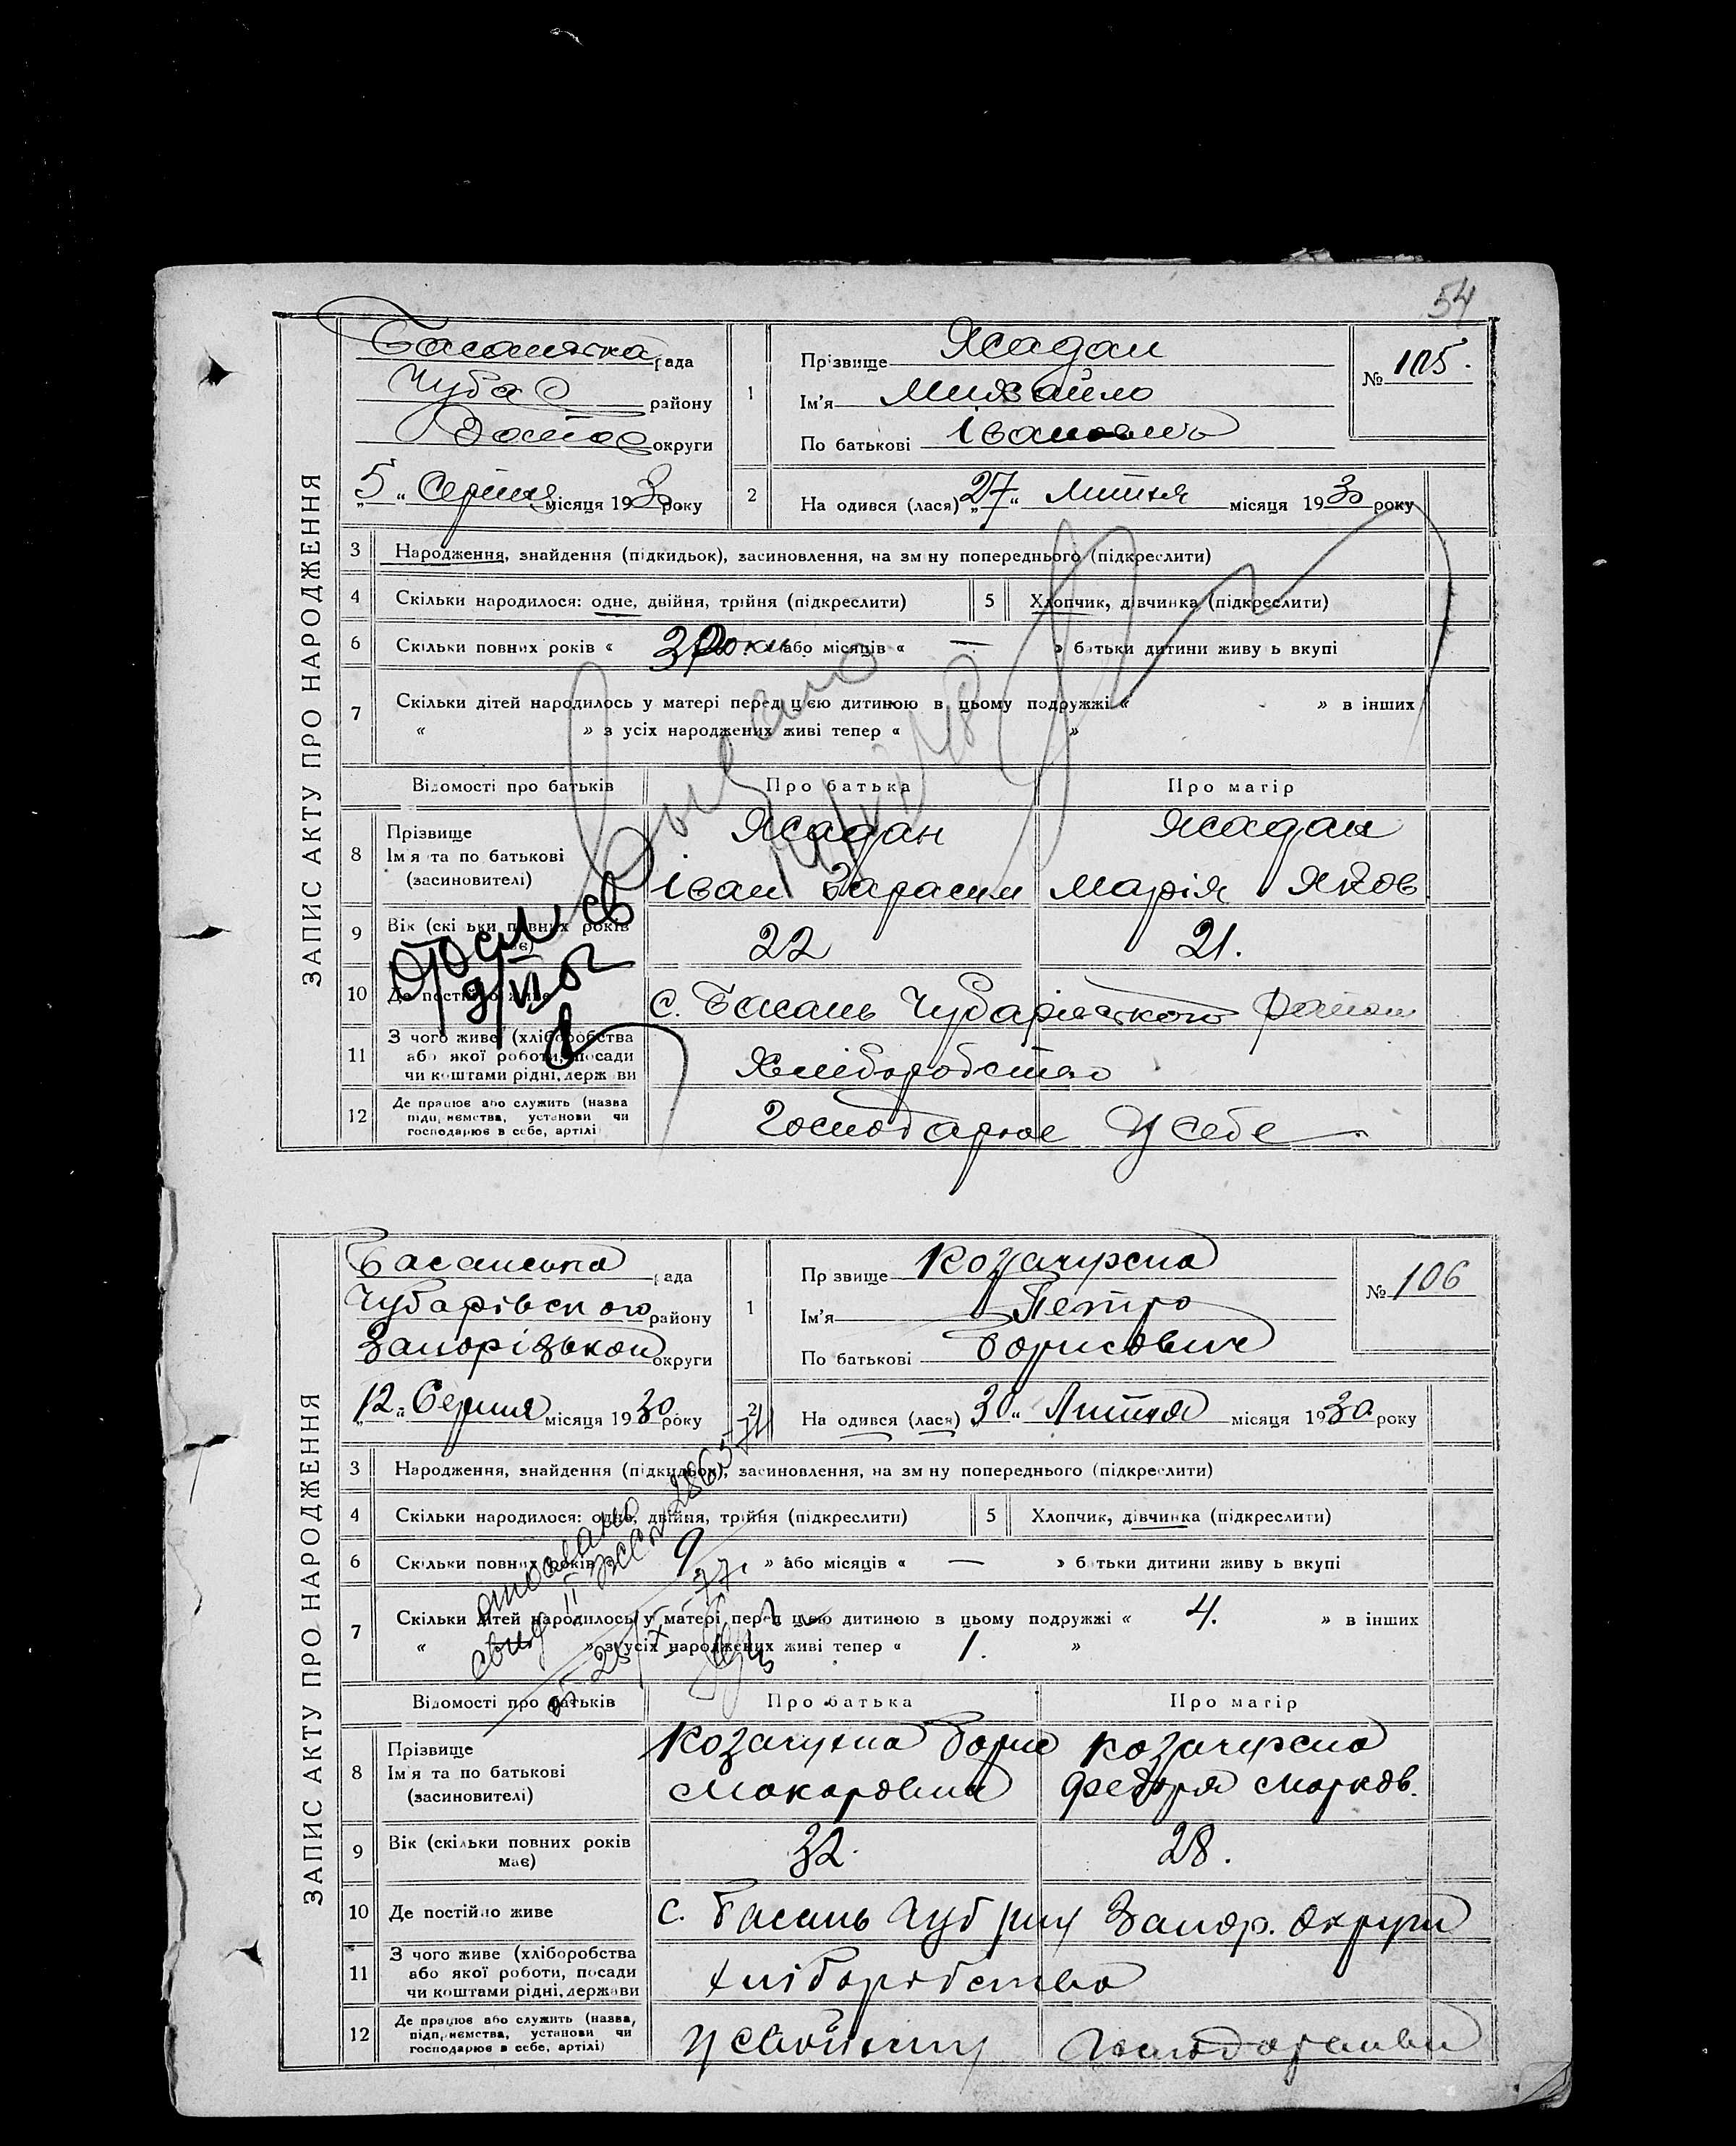 54
ЗАПИС АКТУ ПРО НАРОДЖЕННЯ
Басанська рада
Чубар району
округи
„5“ Серпня місяця 1930 року
1
Прізвище Жадан
Ім'я Михайло
По батькові Іванович
№ 105.
2
На одився (лася) „27“ Липня місяця 1930 року
3 Народження, знайдення (підкидьок), засиновлення, на зм ну попереднього (підкреслити)
4 Скільки народилося: одне, двійня, трійня (підкреслити)
5 Хлопчик, дівчинка (підкреслити)
6 Скільки повних років « 3 роки або місяців « — » батьки дитини живу ь вкупі
7 Скільки дітей народилось у матері перед цією дитиною в цьому подружжі « » в інших
« » з усіх народжених живі тепер « »
Відомості про батьків Про батька Про матір
8 Прізвище
Ім'я та по батькові
(засновителі)
Жадан Жадан
Іван Гарасим Марія Яков
9 Вік (скі ьки повних років
22 21.
10 Де постійно живе с. Басань Чубарівського району
11 З чого живе (хліборобства
або якої роботи, посади
чи коштами рідні, держ ви
Хліборобство
12 Де працює або служить (назва
підп, иємства, установи чи
господарює в себе, артілі
Господарює у себе
ЗАПИС АКТУ ПРО НАРОДЖЕННЯ
Басанська рада
Чубарівського району
Запорізької округи
„12“ Серпня місяця 1930 року
1
Пр звище Козачужна
Ім'я Петро
По батькові Борисович
№ 106
2
На одився (лася) „30“ Липня місяця 1930 року
3 Народження, знайдення (підкидьок), засиновлення, на зм ну попереднього (підкреслити)
4 Скільки народилося: одне, двійня, трійня (підкреслити)
5 Хлопчик, дівчинка (підкреслити)
6 Скільки повних років 9 » або місяців « — » батьки дитини живу ь вкупі
7 Скільки дітей народилось у матері перед цією дитиною в цьому подружжі « 4. » в інших
« » з усіх народжених живі тепер « 1. »
Відомості про батьків Про батька Про матір
8 Прізвище
Ім'я та по батькові
(засиновителі)
Козачужна Борис Козачужна
Макарович Федора Марков.
9 Вік (скільки повних років
має)
32. 28.
10 Де постійно живе с. Басань Чуб р-ну Запор. округи
11 З чого живе (хліборобства
або якої роботи, посади
чи коштами рідні, держави
хліборобство
12 Де працює або служить (назва,
підп, иємства, установи чи
господарює в себе, артілі)
У своїому господарстві